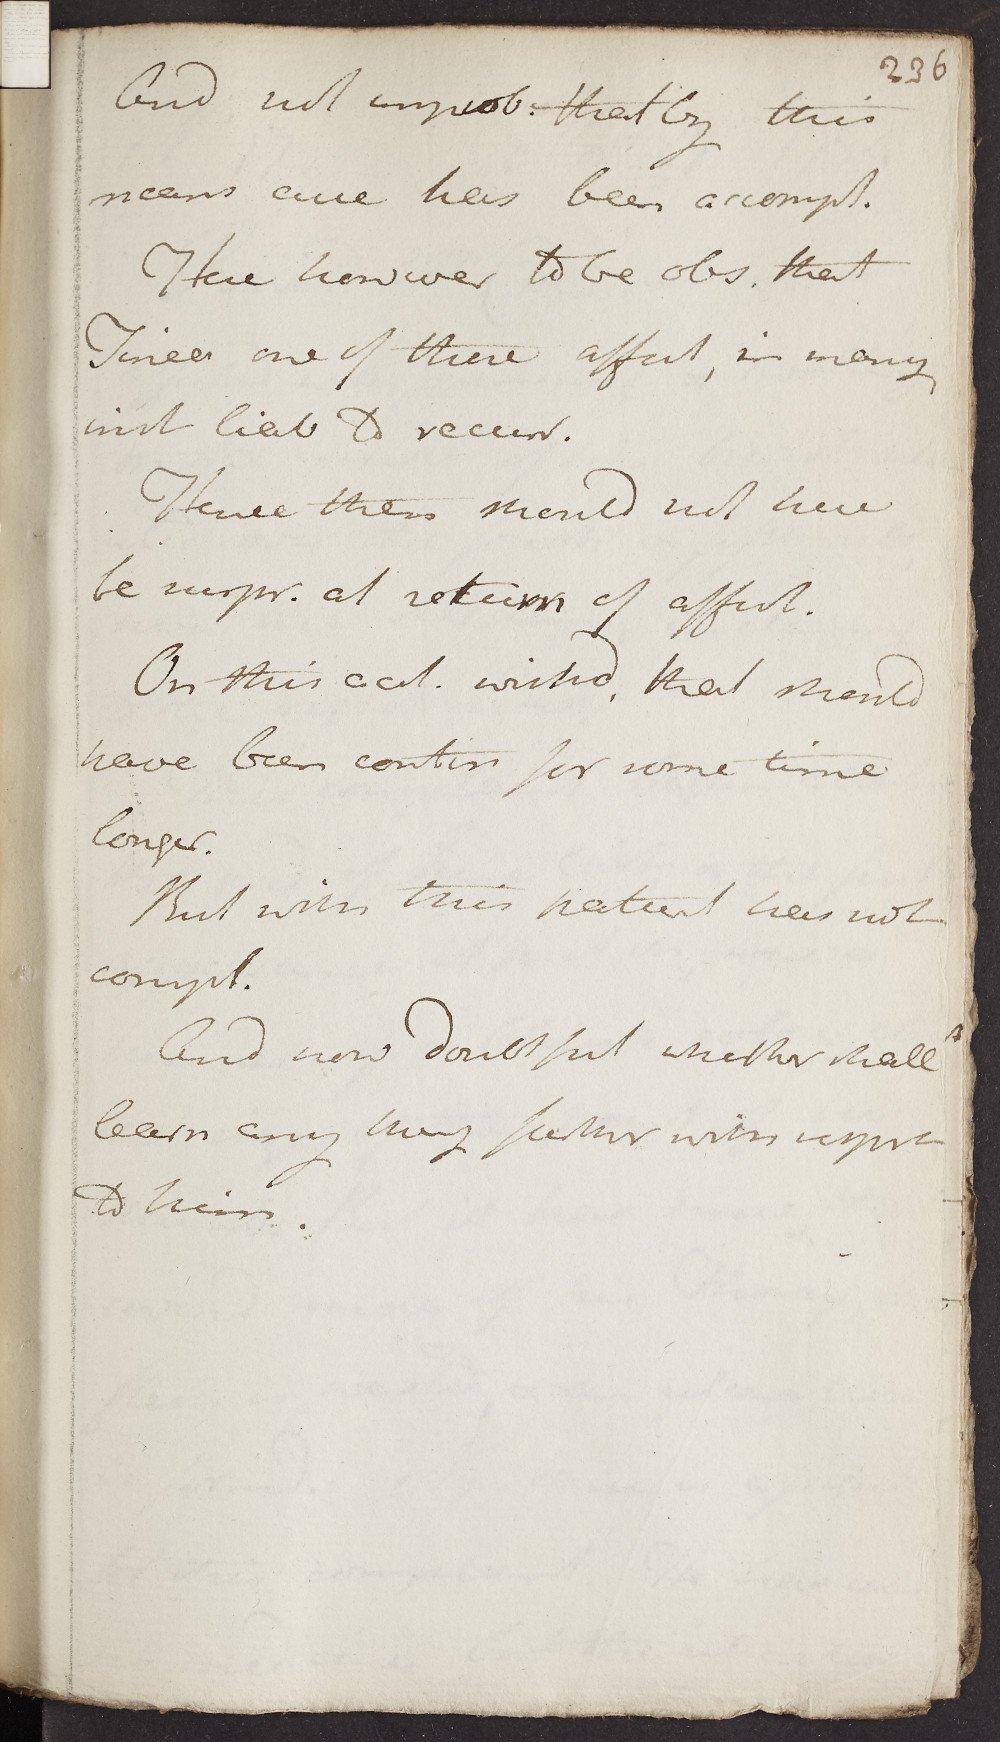 236
And not improb. that by this
means cure has been accompl.
Here however to be obs. that
Tinea one of those affect, in many
inst liab to recur.
Hence then should not here
be surpr. at return of affect.
On this acct. wishd, that should
have been contin for some time
longer.
But with this patient has not
compl.
And now doubtful whether shall
learn any thing further with respect
to him.